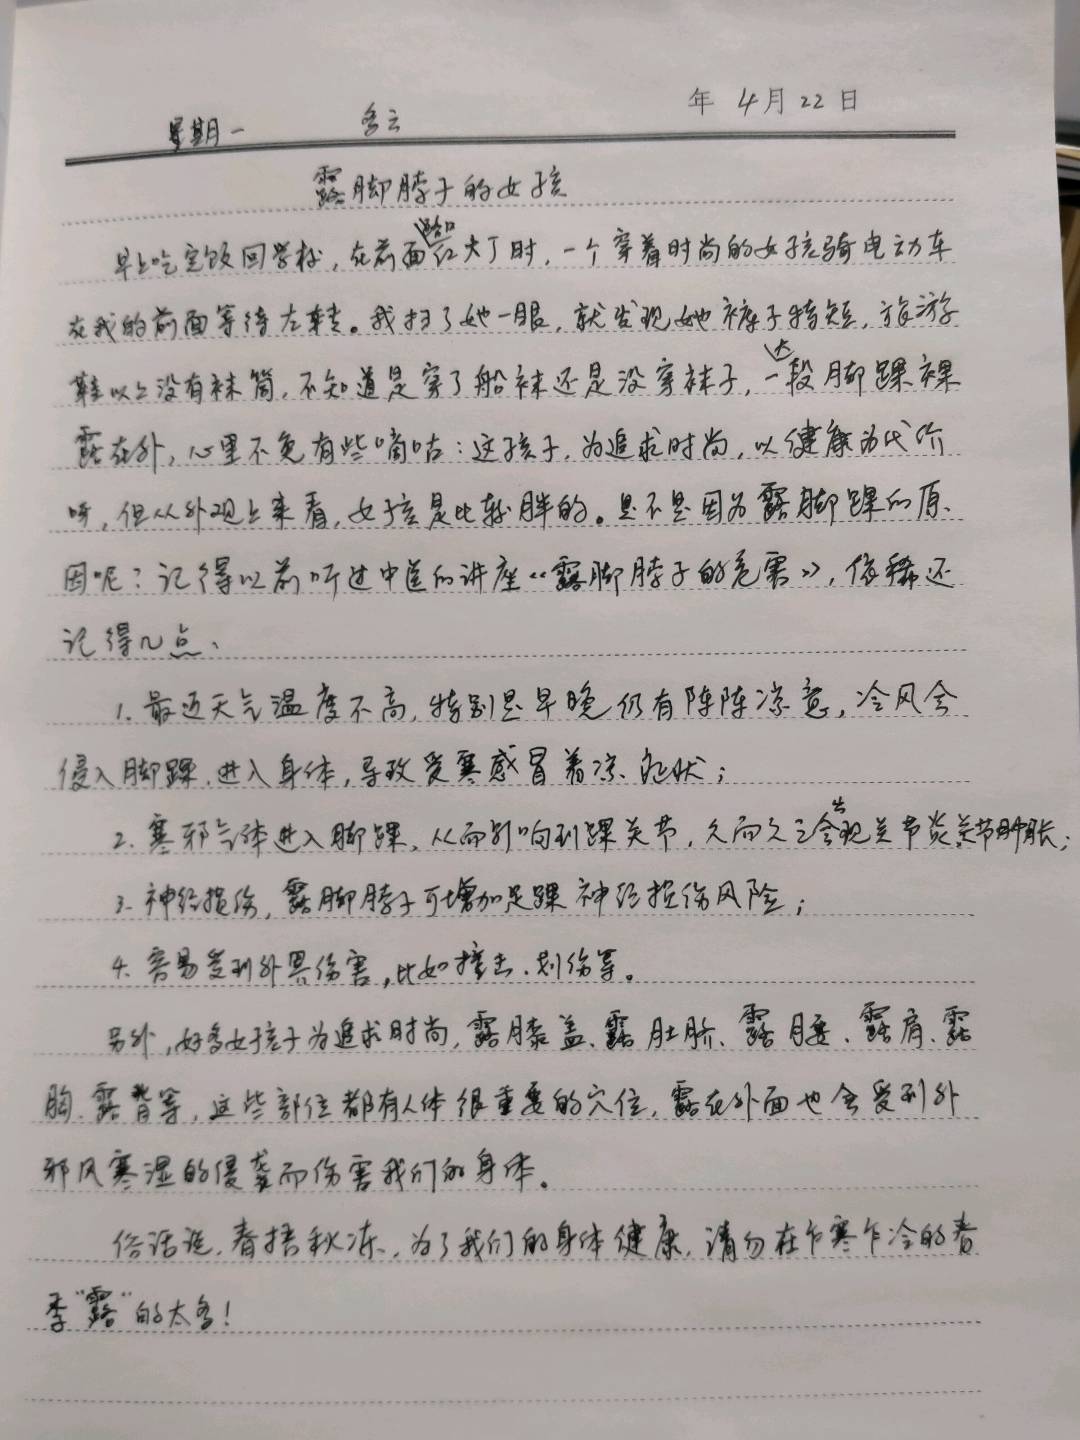 年 4月22日
星期一 多云
露脚脖子的女孩
早上吃完饭回学校，在前面路口红灯时，一个穿着时尚的女孩骑电动车
在我的前面等待左转。我扫了她一眼，就发现她裤子特短，旅游
鞋以上没有袜筒，不知道是穿了船袜还是没穿袜子，一大段脚踝裸
露在外，心里不免有些嘀咕：这孩子，为追求时尚，以健康为代价
呀，但从外观上来看，女孩是比较胖的。是不是因为露脚踝的原
因呢？记得以前听过中医的讲座《露脚脖子的危害》，依稀还
记得几点、
1. 最近天气温度不高，特别是早晚仍有阵阵凉意，冷风会
侵入脚踝、进入身体，导致受寒感冒着凉、症状；
2. 寒邪气体进入脚踝，从而影响到踝关节，久而久之会出现关节炎、关节肿胀；
3. 神经损伤，露脚脖子可增加足踝神经损伤风险；
4. 容易受到外界伤害，比如撞击、划伤等。
另外，好多女孩子为追求时尚，露膝盖、露肚脐、露腰、露肩、露
胸、露背等，这些部位都有人体很重要的穴位，露在外面也会受到外
邪风寒湿的侵袭而伤害我们的身体。
俗话说，春捂秋冻，为了我们的身体健康，请勿在乍寒乍冷的春
季“露”的太多！